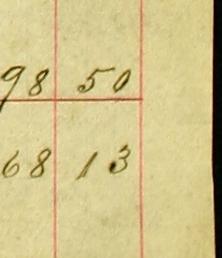 98 50
68 13